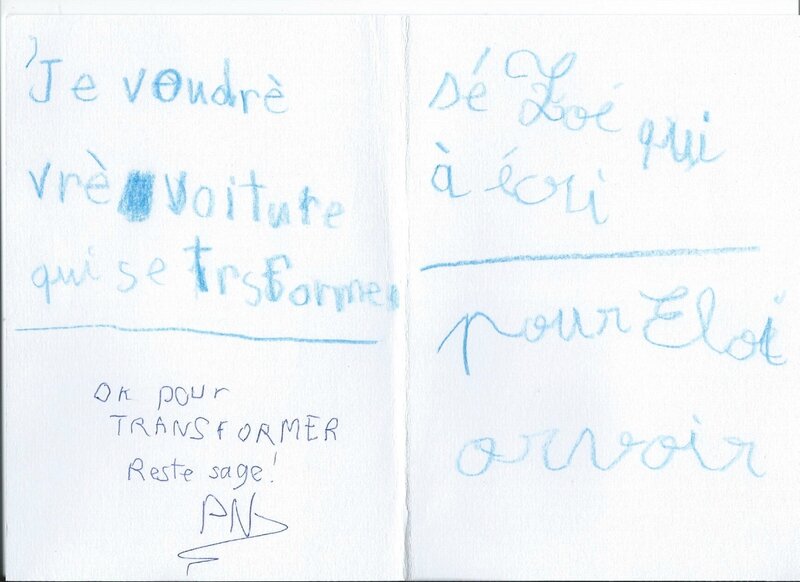 Je voudrè
vrè voiture
qui se trsformer
OK pour
TRANSFORMER
Reste sage!
PN
sé Zoé qui
à écri
pour Eloi
orvoir